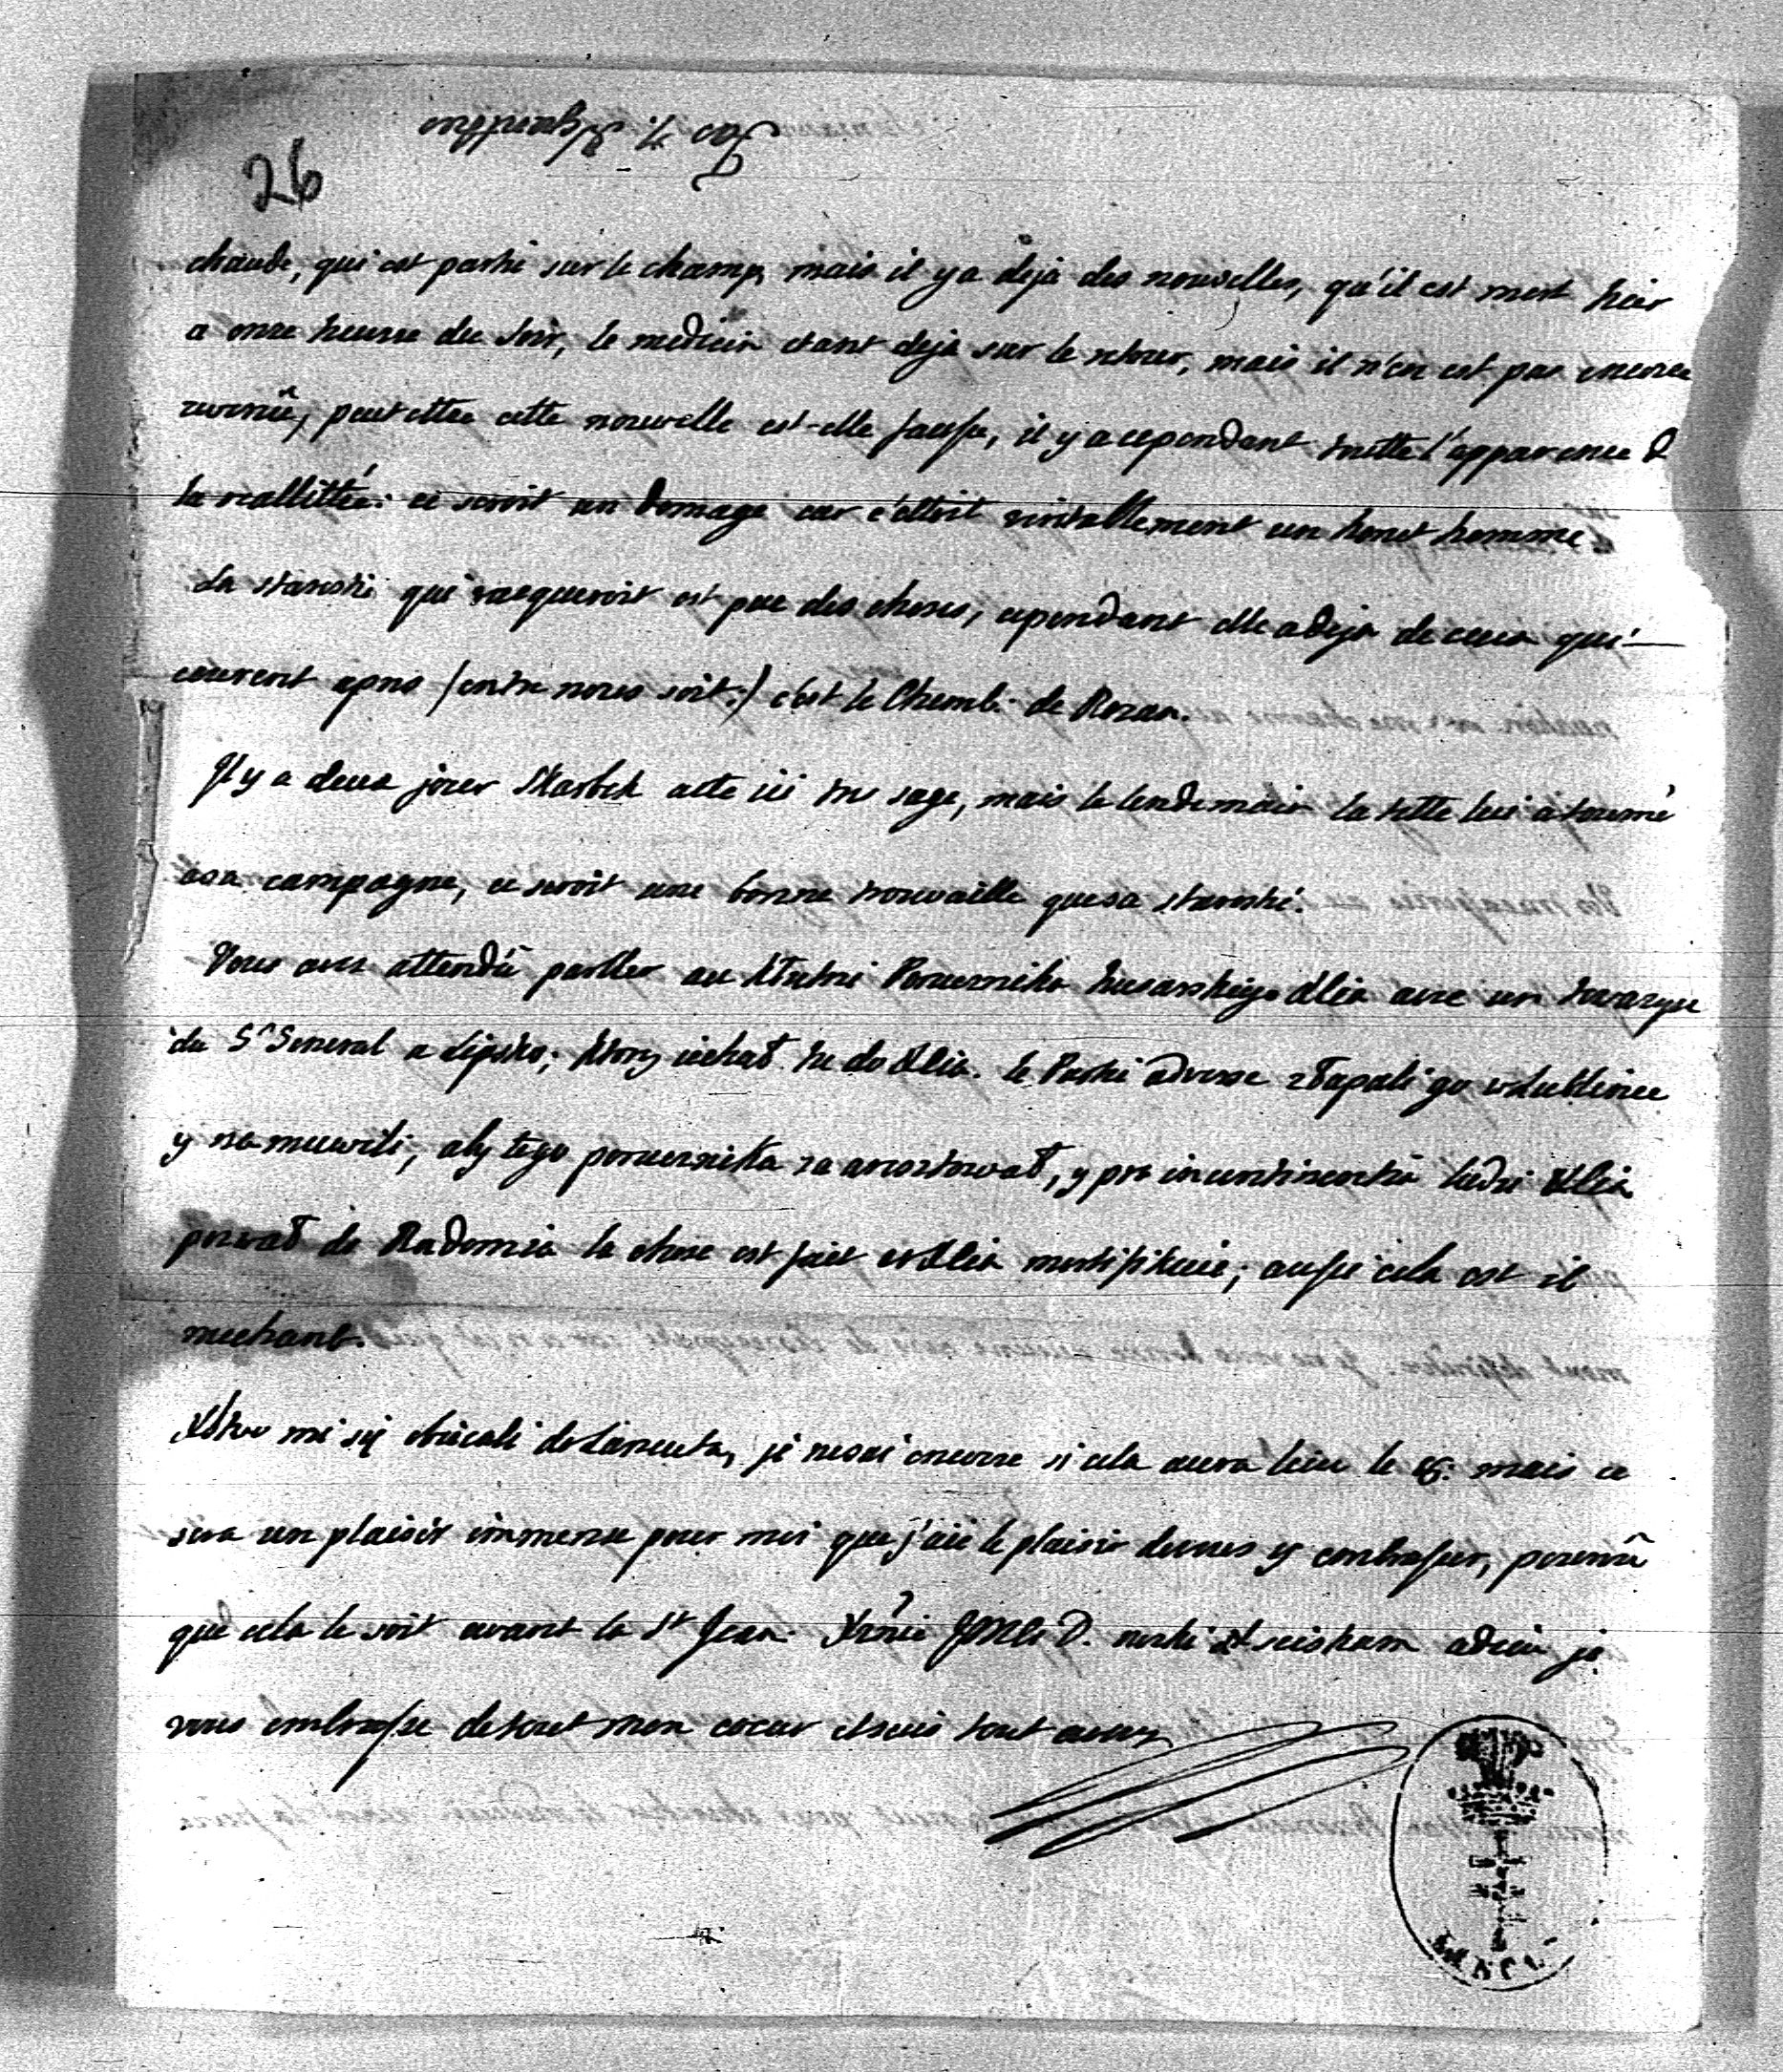 26
chaude, qui est partie sur le champ, mais il y a deja des nouvelles, qu'il est mort hier
a onze heures du soir, le medicin etant deja sur le retour, mais il n'en est pas encore
revenû, peut ettre cette nouvelle est-elle fausse, il y a cependant toutte l'apparence d
la reallittée: ce seroit un domage car c'ettoit veritablement un honet homme
La starostie qui vacqueroit est peu des choses, cependant elle a deja de ceux qui
courent apres /entre nous soit:/ c'est le Chemb: de Rozan.
Il y a deux jours Skarbek a ete ici tres sage, mais le lendemain la tette lui a tourné
a sa campagne, ce seroit une bonne trouvaille que sa starostie.
Vous avez attendû parller au Porucznika husarskiego avec un towarzysz
du S^r General a Lipsko; ktory iechał do le Partie adverse złapali go w Lublinie
y na mowili, aby tego porucznika za aresztował, y pro ludzi
pozwał do Radomia la chose est fait et aussi cela est il
mechant.
mi się obiecali do Łancuta, je ne sai encore si cela aura lieu le mais ce
sera un plaisir immense pour moi que j'aie le plaisir de vous y embrasser, pourvû
que cela le soit avant la S^t Jean. D. adieu je
vous embrasse de tout mon coeur et suis tout a vous